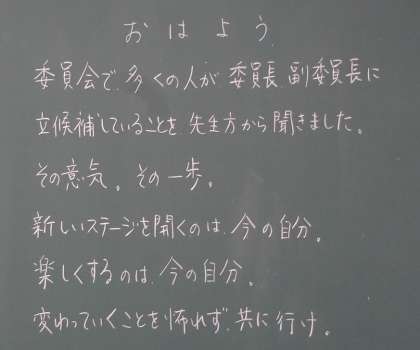 おはよう
委員会で、多くの人が委員長、副委員長に
立候補していることを、先生方から聞きました。
その意気。その一歩。
新しいステージを開くのは、今の自分。
楽しくするのは、今の自分。
変わっていくことを怖れず、共に行け。